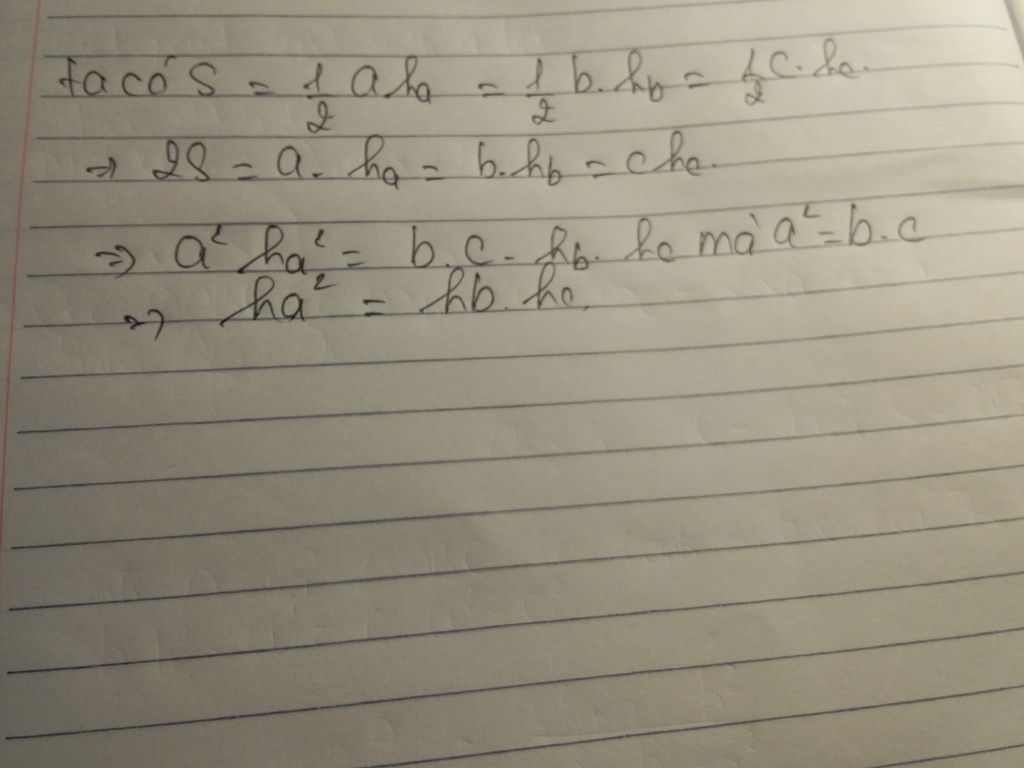 ta có S = 1/2 a ha = 1/2 b. hb = 1/2 c. hc.
→ 2S = a. ha = b. hb = c hc.
⇒ a² ha² = b. c. hb. hc mà a² = b. c
⇒ ha² = hb. hc.